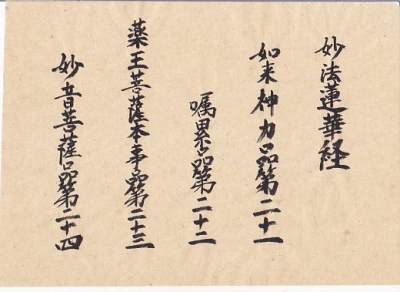 妙法蓮華経
如来神力品第二十一
嘱累品第二十二
薬王菩薩本事品第二十三
妙音菩薩品第二十四